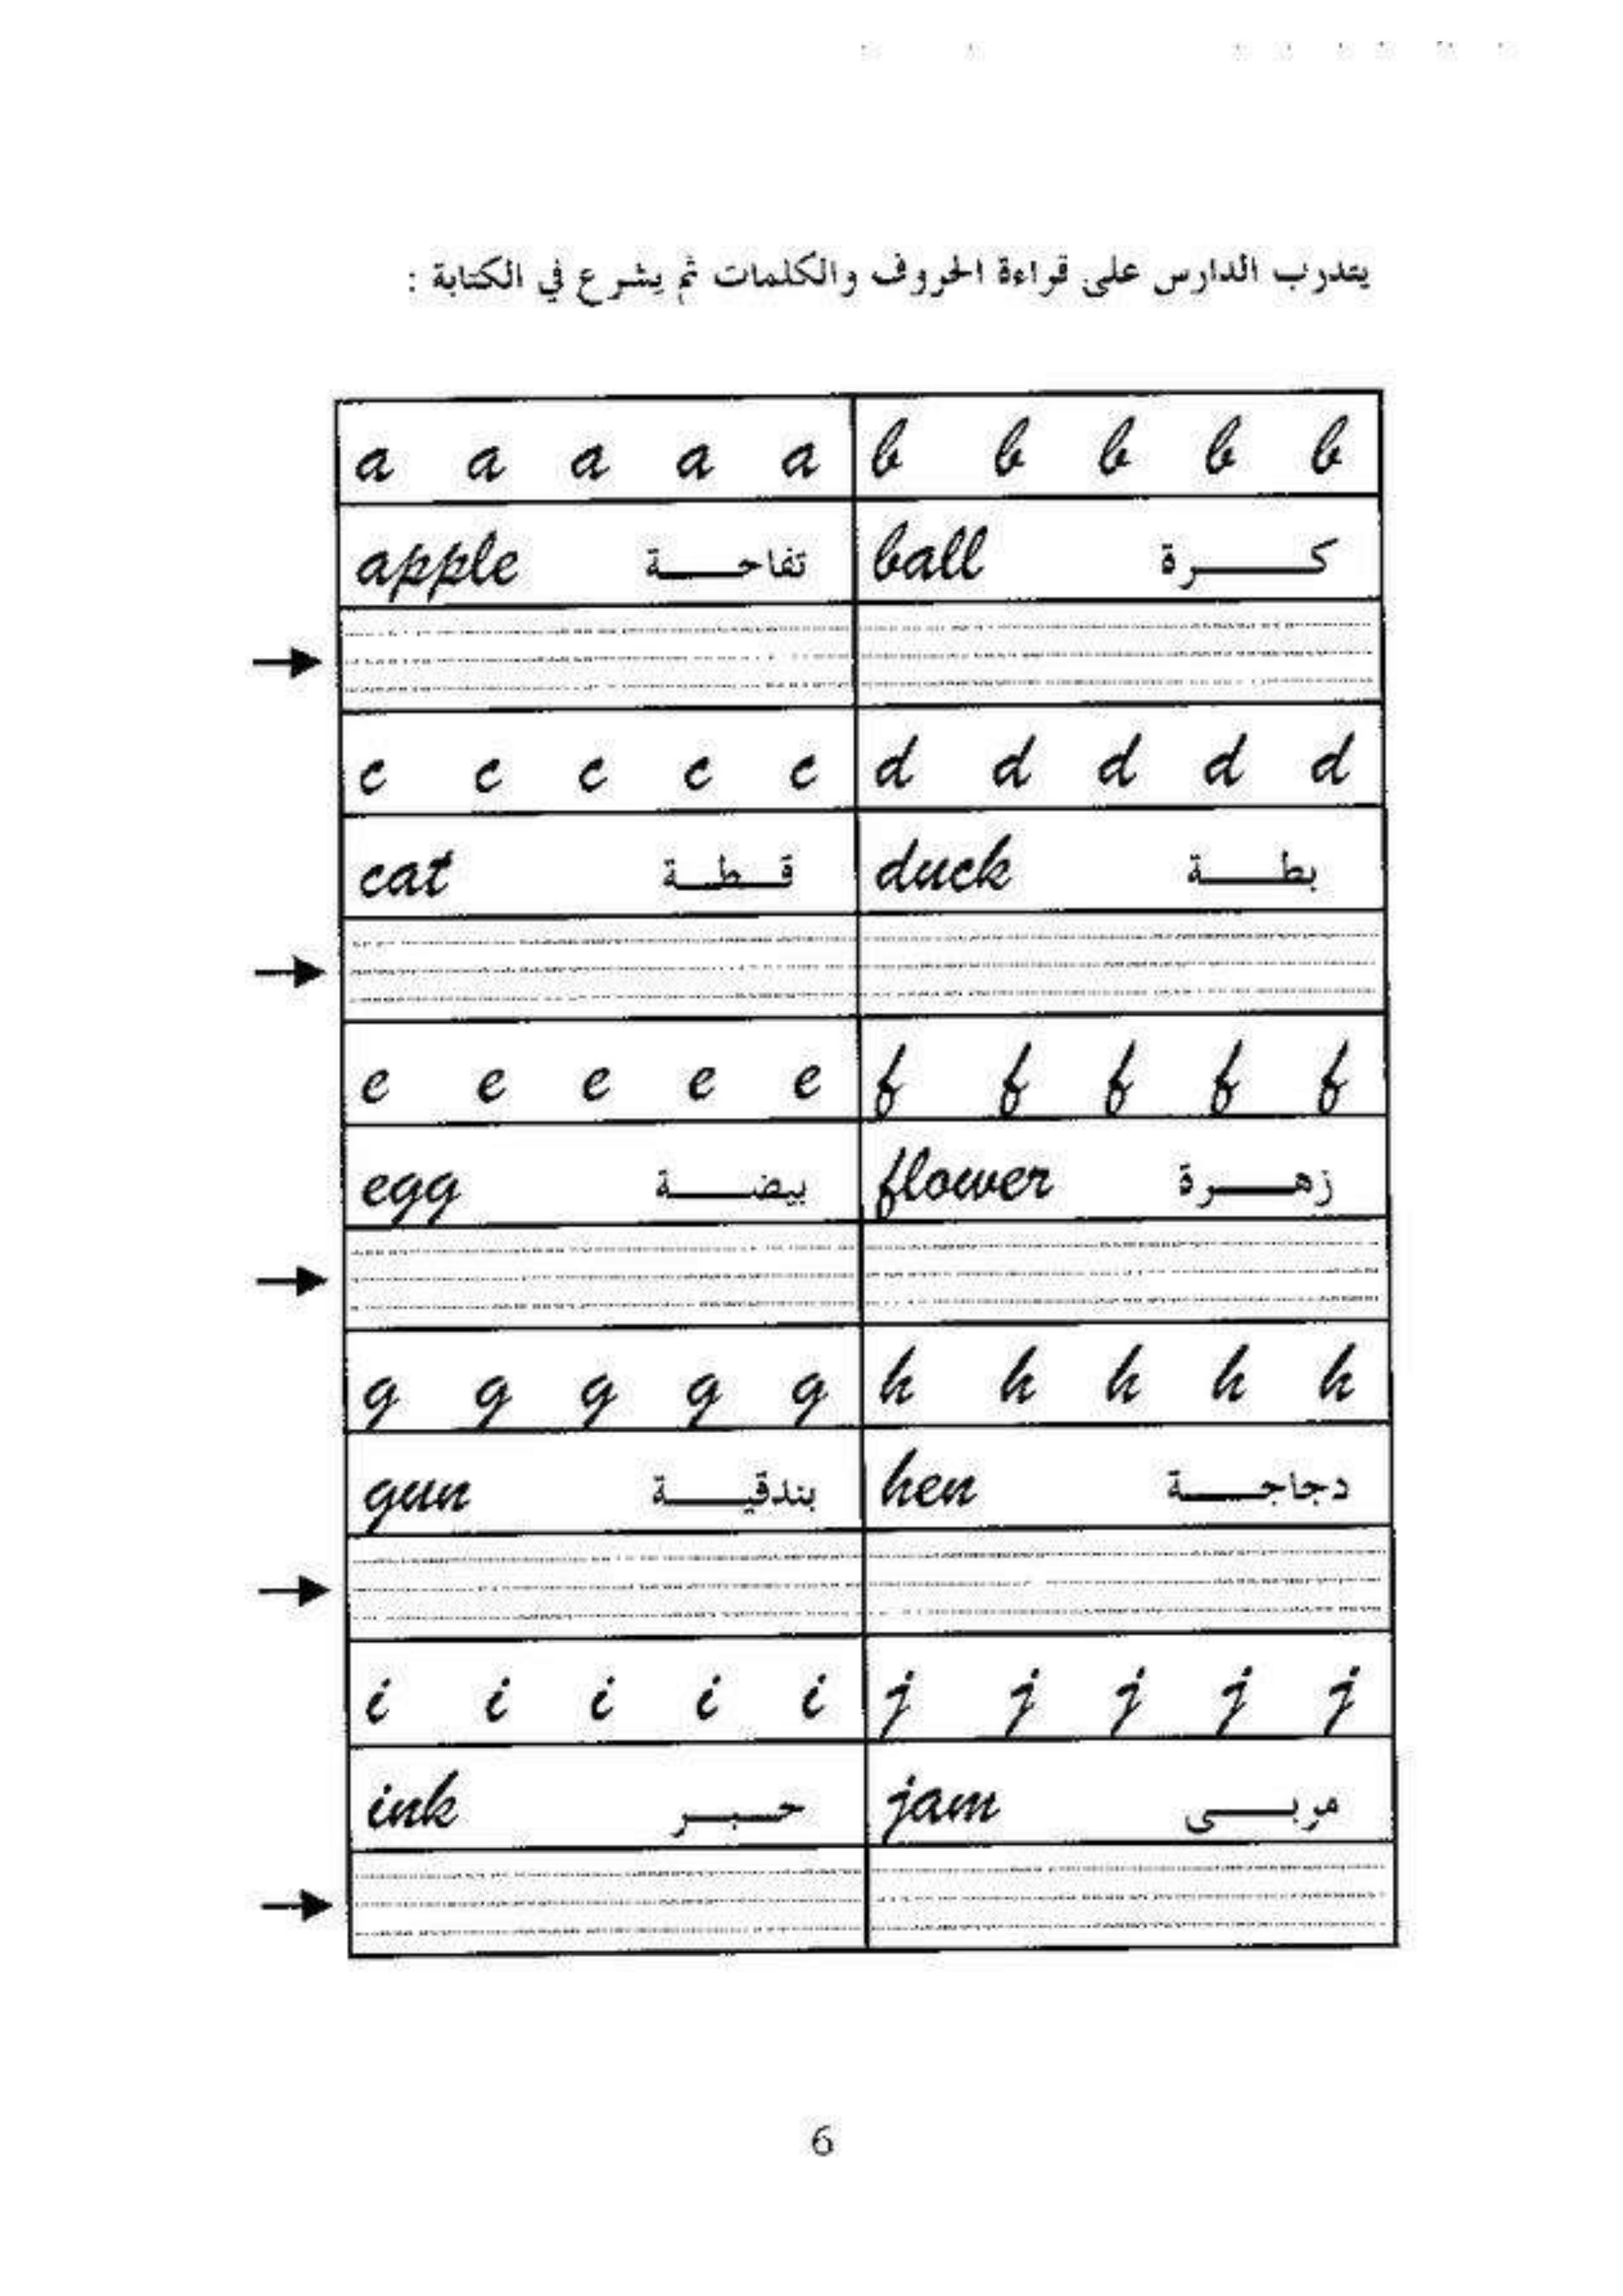 يتدرب الدارس على قراءة الحروف والكلمات ثم يشرع في الكتابة :
a a a a a b b b b b
apple تفاحـــة ball كـــرة
c c c c c d d d d d
cat قـطـة duck بطـــة
e e e e e f f f f f
egg بيضـــة flower زهـــرة
g g g g g h h h h h
gun بندقيـــة hen دجاجـــة
i i i i i j j j j j
ink حـبـر jam مربـــى
6